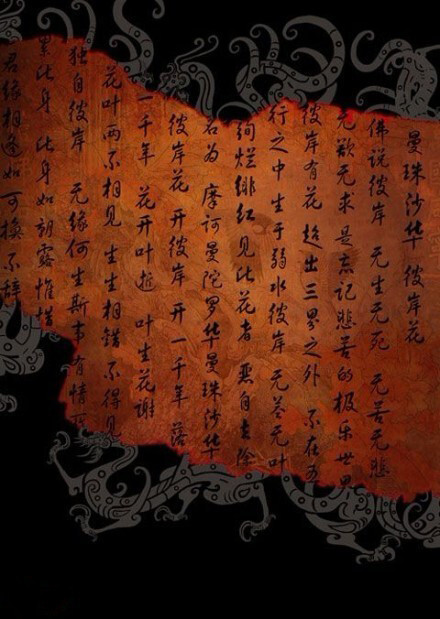 曼珠沙华 彼岸花
佛说彼岸 无生无死 无苦无悲
无欲无求 是忘记悲苦的极乐世界
彼岸有花 超出三界之外 不在五
行之中 生于弱水彼岸 无茎无叶
绚烂绯红 见此花者 恶自去除
名为 摩诃曼陀罗华曼珠沙华
彼岸花 开彼岸 开一千年 落
一千年 花开叶逝 叶生花谢
花叶两不相见 生生相错 不得见
独自彼岸 无缘何生斯事有情
累此身 此身如朝露 惟惜
君缘相逢如可换 不辞